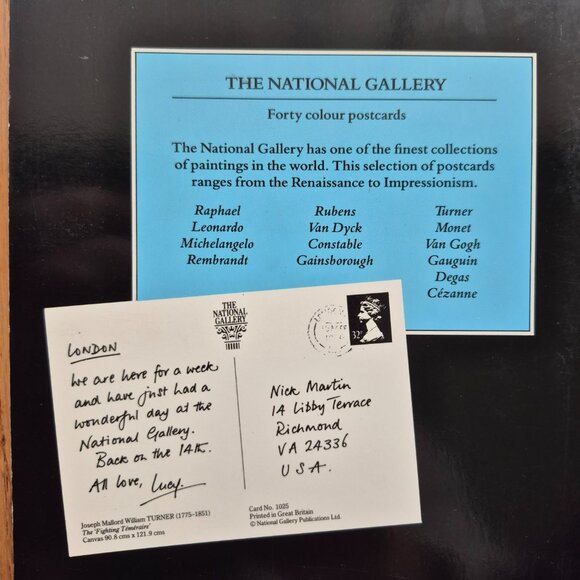 THE NATIONAL GALLERY
Forty colour postcards
The National Gallery has one of the finest collections
of paintings in the world. This selection of postcards
ranges from the Renaissance to Impressionism.
Raphael
Leonardo
Michelangelo
Rembrandt
Rubens
Van Dyck
Constable
Gainsborough
Turner
Monet
Van Gogh
Gauguin
Degas
Cézanne
THE
NATIONAL
GALLERY
LONDON
We are here for a week
and have just had a
wonderful day at the
National Gallery.
Back on the 14th.
All love, Lucy.
Joseph Mallord William TURNER (1775–1851)
The 'Fighting Téméraire'
Canvas 90.8 cms x 121.9 cms
32
Nick Martin
14 Libby Terrace
Richmond
VA 24336
USA.
Card No. 1025
Printed in Great Britain
© National Gallery Publications Ltd.